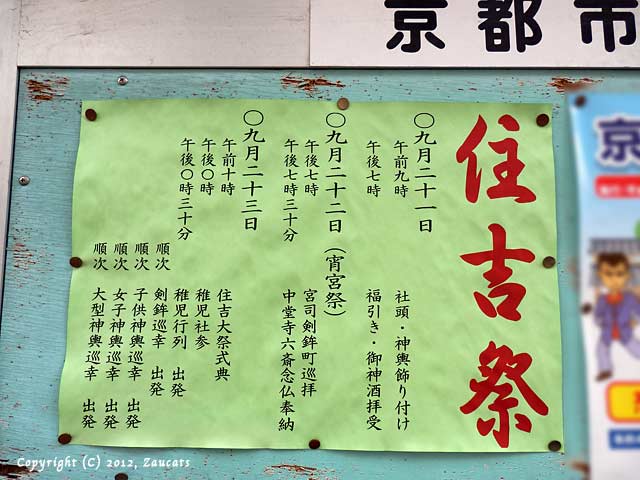 京都市
住吉祭
〇九月二十一日
午前九時　社頭・神輿飾り付け
午後七時　福引き・御神酒拝受
〇九月二十二日（宵宮祭）
午後七時　宮司剣鉾町巡拝
午後七時三十分　中堂寺六斎念仏奉納
〇九月二十三日
午前十時　住吉大祭式典
午後〇時　稚児社参
午後〇時三十分　稚児行列　出発
順次　剣鉾巡幸　出発
順次　子供神輿巡幸　出発
順次　女子神輿巡幸　出発
順次　大型神輿巡幸　出発
京
Copyright (C) 2012, Zaucats